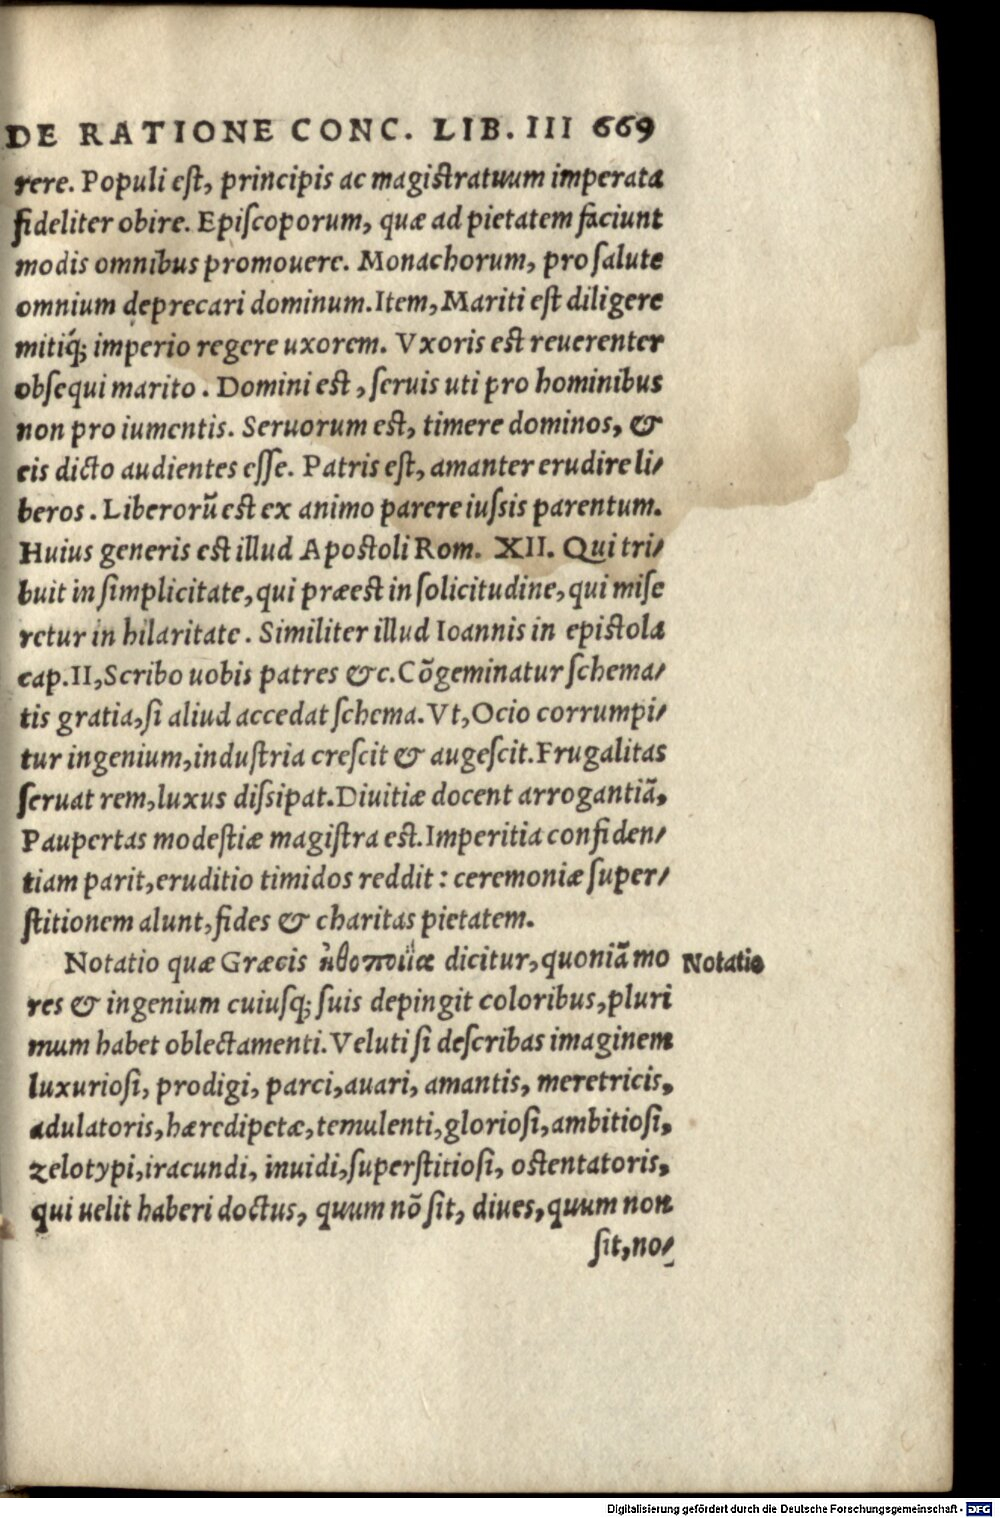 DE RATIONE CONC. LIB. III 669
rere. Populi eſt, principis ac magiſtratuum imperata
fideliter obire. Epiſcoporum, quæ ad pietatem faciunt
modis omnibus promouere. Monachorum, pro ſalute
omnium deprecari dominum. Item, Mariti eſt diligere
mitiq́; imperio regere uxorem. Vxoris eſt reuerenter
obſequi marito. Domini eſt, ſeruis uti pro hominibus
non pro iumentis. Seruorum eſt, timere dominos, &
eis dicto audientes eſſe. Patris eſt, amanter erudire li⸗
beros. Liberorũ eſt ex animo parere iuſsis parentum.
Huius generis eſt illud Apoſtoli Rom. XII. Qui tri⸗
buit in ſimplicitate, qui præeſt in ſolicitudine, qui miſe
retur in hilaritate. Similiter illud Ioannis in epiſtola
cap. II, Scribo uobis patres &c. Cõgeminatur ſchema⸗
tis gratia, ſi aliud accedat ſchema. Vt, Ocio corrumpi⸗
tur ingenium, induſtria creſcit & augeſcit. Frugalitas
ſeruat rem, luxus diſsipat. Diuitiæ docent arrogantiã,
Paupertas modeſtiæ magiſtra eſt. Imperitia confiden⸗
tiam parit, eruditio timidos reddit: ceremoniæ ſuper⸗
ſtitionem alunt, fides & charitas pietatem.
Notatio quæ Græcis ἠθοποιΐα dicitur, quoniã mo
Notatio
res & ingenium cuiuſq; ſuis depingit coloribus, pluri
mum habet oblectamenti. Veluti ſi deſcribas imaginem
luxurioſi, prodigi, parci, auari, amantis, meretricis,
adulatoris, hæredipetæ, temulenti, glorioſi, ambitioſi,
zelotypi, iracundi, inuidi, ſuperſtitioſi, oſtentatoris,
qui uelit haberi doctus, quum nõ ſit, diues, quum non
ſit, no⸗
Digitalisierung gefördert durch die Deutsche Forschungsgemeinschaft - DFG